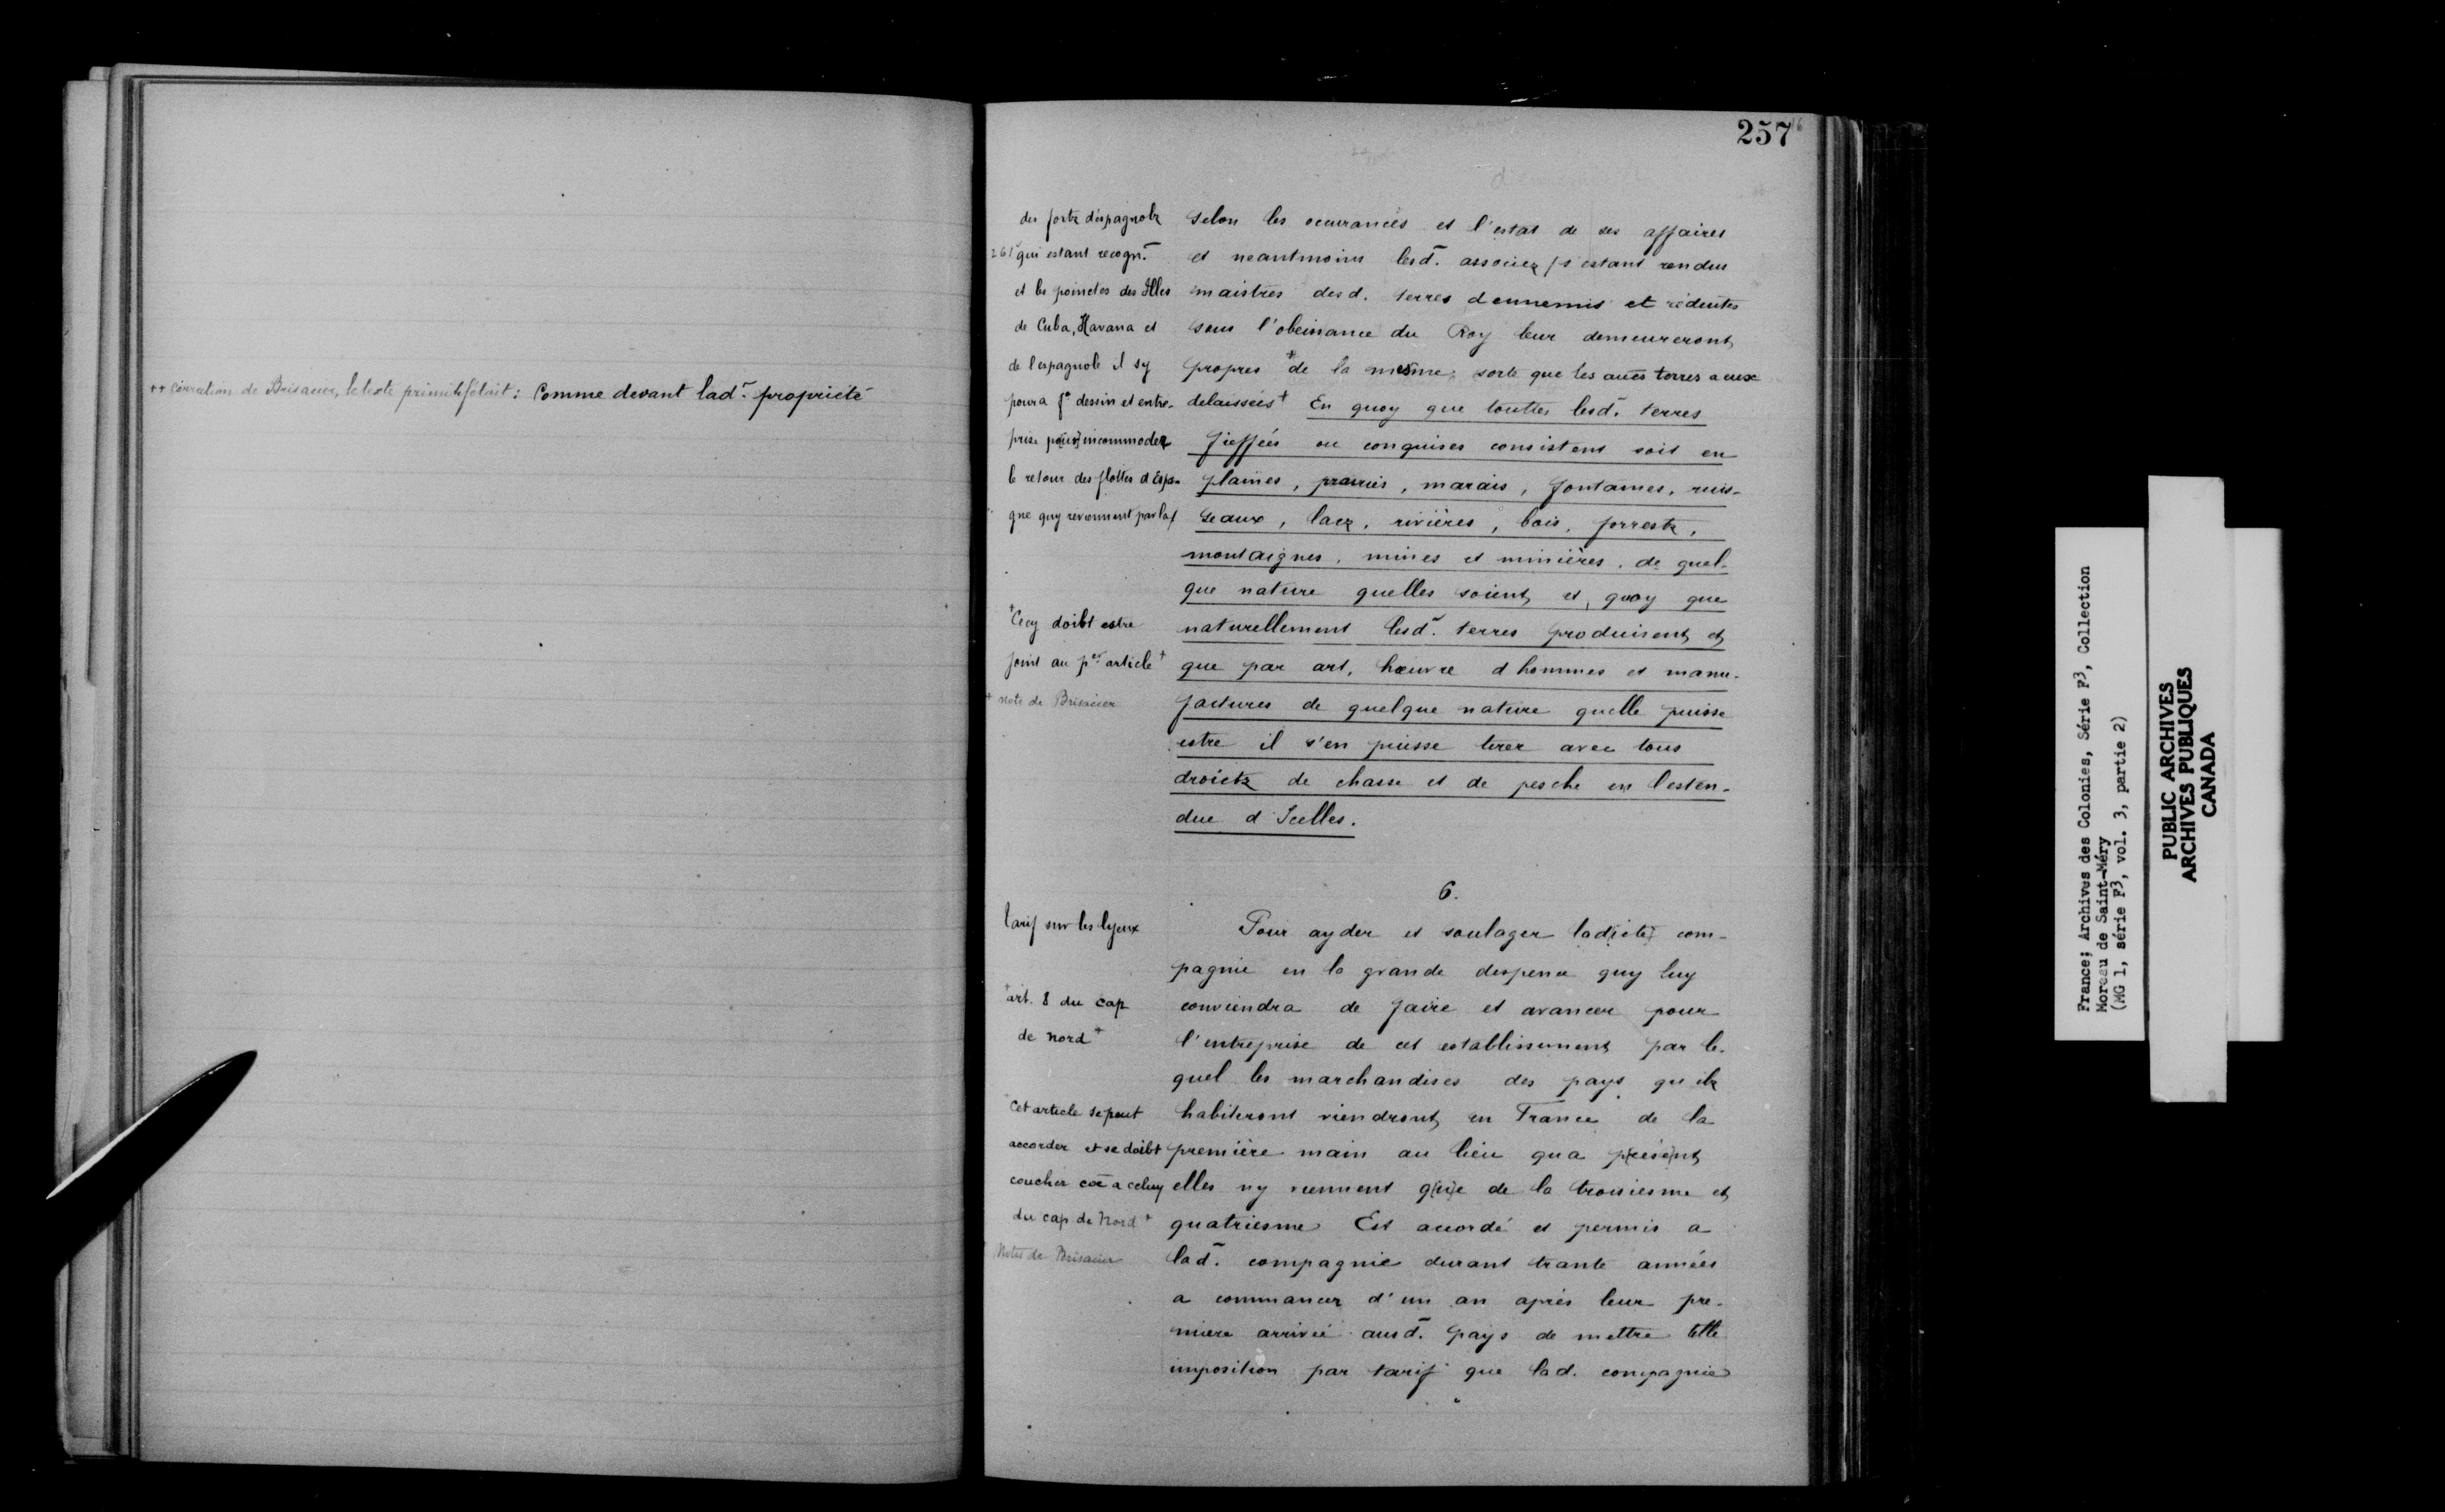 ++ Correction de Brisacier, le texte primitif était : Comme devant lad. propriété
257
des fortz d'espagnolz
261 qui estant recogn.
et les poinctes des Illes
de Cuba, Havana et
de l'espagnole il sy
poura fe dessin et entre-
prise p(our) incommoder
le retour des flottes d'Espa-
gne quy reviennent par la
+ Cecy doibt estre
joint au per article +
+ note de Brisacier
selon les occurances et l'estat de ses affaires
et neantmoins lesd. associez s'estant rendus
maistres desd. terres d'ennemis et réduites
sous l'obeissance du Roy leur demeureront
propres + de la mesme sorte que les autes terres a eux
delaissées + En quoy que touttes lesd. terres
fieffées ou conquises consistent soit en
plaines, prairies, marais, fontaines, ruis-
seaux, lacz, rivières, bois, forrestz,
montaignes, mines et minières, de quel-
que nature quelles soient, et, quoy que
naturellement lesd. terres produisent et
que par art, hœuvre d'hommes et manu-
factures de quelque nature quelle puisse
estre il s'en puisse tirer avec tous
droictz de chasse et de pesche en l'esten-
due d'Icelles.
6.
tarif sur les lyeux
+ art. 8 du cap
de nord +
Cet article se peut
accorder et se doibt
coucher coe a celuy
du cap de Nord +
Notes de Brisacier
Pour ayder et soulager lad(icte) com-
pagnie en la grande despence quy luy
conviendra de faire et avancer pour
l'entreprise de cet establissement par le-
quel les marchandises des pays qu'ilz
habiteront viendront en France de la
première main au lieu qu'a p(résé)nt
elles ny viennent q(u)e de la troisiesme et
quatriesme Est accordé et permis a
lad. compagnie durant trante années
a commancer d'un an après leur pre-
miere arrivée ausd. pays de mettre telle
imposition par tarif que lad. compagnie
France; Archives des Colonies, Série F3, Collection
Moreau de Saint-Méry
(MG 1, série F3, vol. 3, partie 2)
PUBLIC ARCHIVES
ARCHIVES PUBLIQUES
CANADA